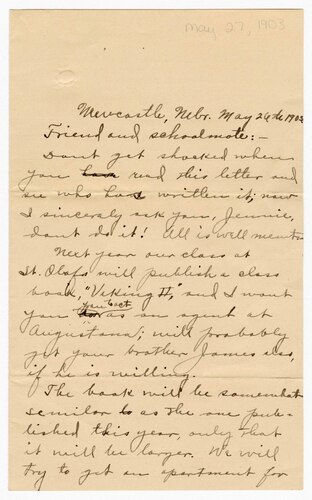 May 27, 1903
Newcastle, Nebr. May 26th 1903
Friend and schoolmate:-
Dont get shocked when
you read this letter and
see who has written it; now
I sincerely ask you, Jennie,
dont do it! All is well meant.
Next year our class at
St. Olafs will publish a class
book, "Viking II," and I want
you to act
you as an agent at
Augustana; will probably
get your brother James also,
if he is willing.
The book will be somewhat
similar to as the one pub-
lished this year, only that
it will be larger. We will
try to get an apartment for